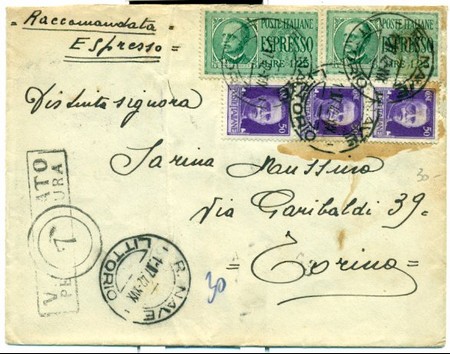 = Raccomandata =
Espresso =
POSTE ITALIANE
ESPRESSO
LIRE 1.25
POSTE ITALIANE
ESPRESSO
LIRE 1.25
50
50
50
Distinta signora
Sarina Mussino
Via Garibaldi 39=
= Torino =
R. NAVE
LITTORIO
30
30-
7
R. NAVE
LITTORIO